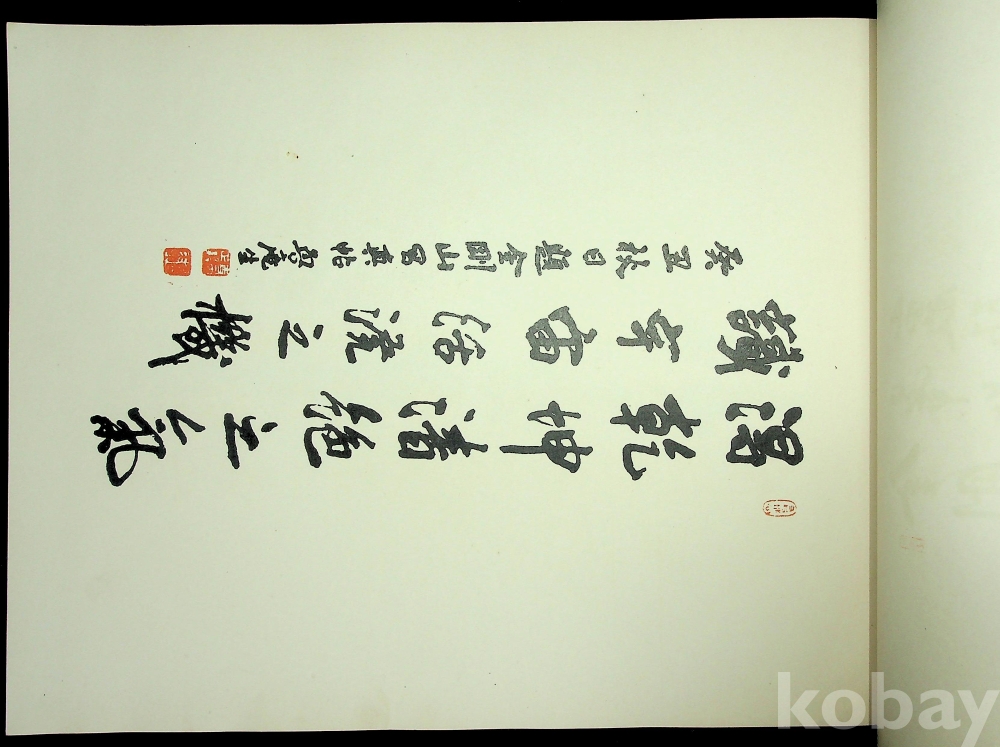 乾坤清絶之氣
識宇宙活流之機
癸丑秋日題金剛山寫真帖 生
kobay